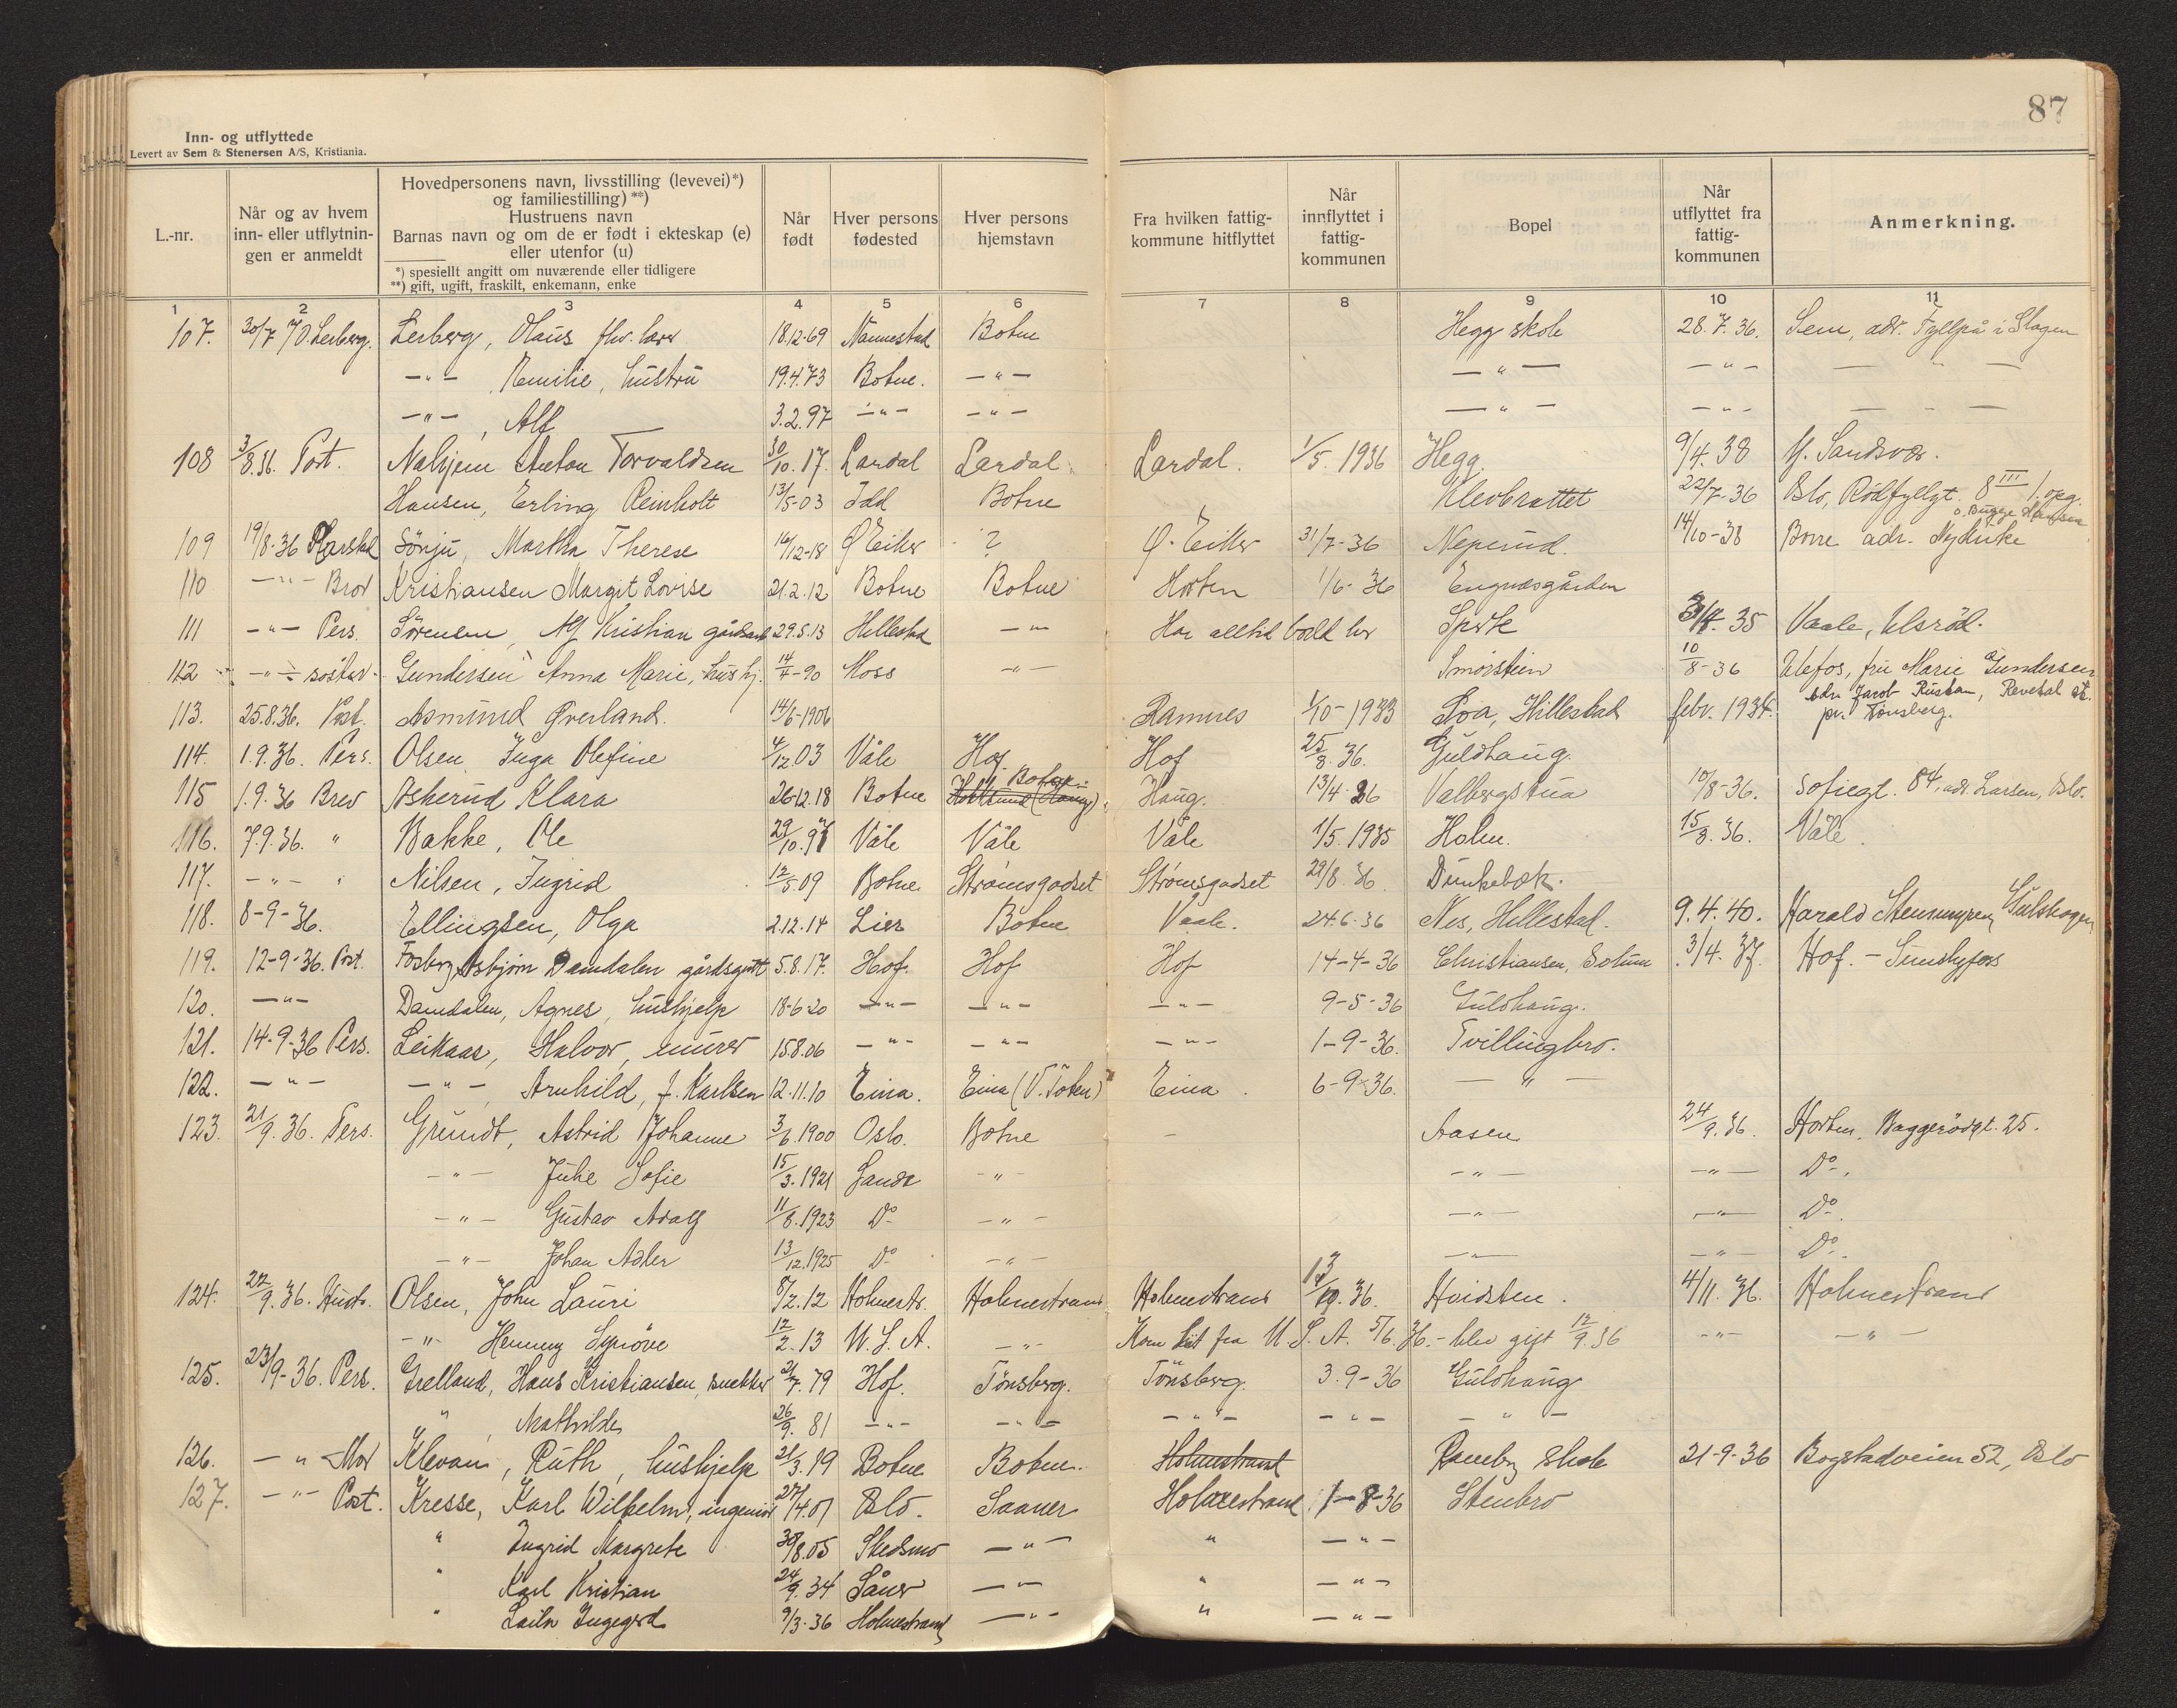 87
Inn- og utflyttede
Levert av Sem & Stenersen A/S, Kristiania.
L.-nr.
Når og av hvem inn- eller utflytnin-gen er anmeldt
Hovedpersonens navn, livsstilling (levevei)*)
og familiestilling)**)
Hustruens navn
Barnas navn og om de er født i ekteskap (e)
eller utenfor (u)
*) spesiellt angitt om nuværende eller tidligere
**) gift, ugift, fraskilt, enkemann, enke
Når født
Hver persons fødested
Hver persons hjemstavn
Fra hvilken fattig-kommune hitflyttet
Når innflyttet i fattig-kommunen
Bopel
Når utflyttet fra fattig-kommunen
Anmerkning.
1 2 3 4 5 6 7 8 9 10 11
107. 30/7 O. Lerberg. Lerberg, Olaus fhv. lærer 18.12.69 Nannestad Botne Hegg skole 28.7.36. Sem, adr. Fyllpå i Slagen
—"— Emilie, hustru 19.4.73 Botne. —"— —"— —"— — " —
—"—, Alf 3.2.97 —"— —"— —"— —"— — " —
108 3/8.36. Post. Nahjem Anton Torvaldsen 30/10.17. Lardal Lardal Lardal. 1/5.1936 Hegg. 9/4.38 Y. Sandsvær.
Hansen, Erling Reinholt 13/5-03 Idd Botne Klevbrattet 22/7-36 Oslo, Rødfyllgt. 8 III 1. opg.
109 19/8-36 Sönju, Martha Therese 16/12-18 Ø Eiker ? Ø. Eiker 31/7-36 Neperud. 14/10-38 Borre adr. Nykirke
110 —"— Bror Kristiansen Margit Lovise 21.2.12 Botne Botne Horten 1/6-36 Engnæsgården
111 —"— Pers. Sörensen, Alf Kristian gårdsarb 29.5.13 Hillestad —"— Har alltid bodd her 35 Vaale, Ulsröd.
112 —"— søster. Gundersen Anna Marie, hushj. 14/4-90 Moss —"— Smørstein 10/8-36 Ulefos, fru Marie Gundersen
113. 25.8.36. Post. Asmund Øverland. 14/6-1906 Ramnes 1/10-1933 Loa, Hillestad febr. 1934. adr. Jarob Rustan, Revetal st. pr. Tönsberg.
114. 1.9.36. Pers. Olsen Inga Olefine 4/12.03 Våle Hof Hof 25/8.36. Guldhaug.
115 1.9.36 Brev Askerud Klara 26.12.18 Botne Hokksund (Haug). Botne Haug. 13/4.36 Valbergstua 10/8-36. Sofiegt. 84, adr. Larsen, Oslo.
116. 7.9.36. " Bakke, Ole 29/10.97 Våle Våle Våle 1/5.1935 Holm. 15/8.36. Våle.
117. —"— " Nilsen, Ingrid 12/5.09 Botne Strømsgodset Strømsgodset 29/8.36. Dunkebæk.
118. 8-9-36. Ellingsen, Olga 2.12.14 Lier Botne Vaale. 24.6.36 Nes, Hillestad. 9.4.40. Harald Stensmyren, Gulskogen
119. 12-9-36. Post. Fosberg Asbjørn Damdalen gårdsgutt 5.8.17. Hof. Hof Hof 14-4-36 Christiansen, Solum 3/4.37. Hof. - Sundbyfoss
120. —"— Damdalen, Agnes, hushjelp 18-6-20 —"— —"— —"— 9-5-36 Guldhaug.
121. 14-9-36 Pers. Leikaas, Halvor, murer 15.8.06 —"— —"— —"— 1-9-36. Tvillingbro.
122. —"— —"—, Arnhild, f. Karlsen 12.11.10 Eina. Eina (V. Toten) Eina. 6-9-36. —"—
123. 21/9.36. Pers. Grundt, Astrid Johanne 3/6.1900 Oslo. Botne - Aasen 24/9.36. Horten, Baggerødgt. 25.
—"— Julie Sofie 15/3.1921 Sande —"— —"— —"— Do.
—"— Gustav Adolf 11/8.1923 Do —"— —"— —"— Do.
—"— Johan Adler 13/12.1925 Do —"— —"— —"— Do.
124. 22/9.36. Hustr. Olsen, John Lauri 8/2.12 Holmestr. Holmestrand Holmestrand 36. Hvidsten. 4/11.36. Holmestrand
—"— Henny Synöve 12/2.13 U.S.A. —"— Kom hit fra U.S.A. 5/6.36. - blev gift 12/9.36 —"— —"—
125. 23/9-36. Pers. Grelland, Hans Kristiansen, snekker 21/7.79 Hof. Tönsberg. Tönsberg 3.9-36 Guldhaug
" , Mathilde 26/9.81 —"— —"— —"— —"— —"—
126. —"— Mor Klevan, Ruth, hushjelp 21/3.19 Botne Botne. Holmestrand Ramberg skole 21-9-36 Bogstadveien 52, Oslo
127. —"— Post. Kresse, Karl Wilhelm, ingeniør 27/4.01 Oslo. Saaner Holmestrand 1-8-36 Stenbro
" Ingrid Margrete 30/8.05 Skedsmo —"— " —"—
" Karl Kristian 24/9.34 Såner —"— " —"—
" Laila Ingegerd 9/3.36 Holmestrand —"— " —"—